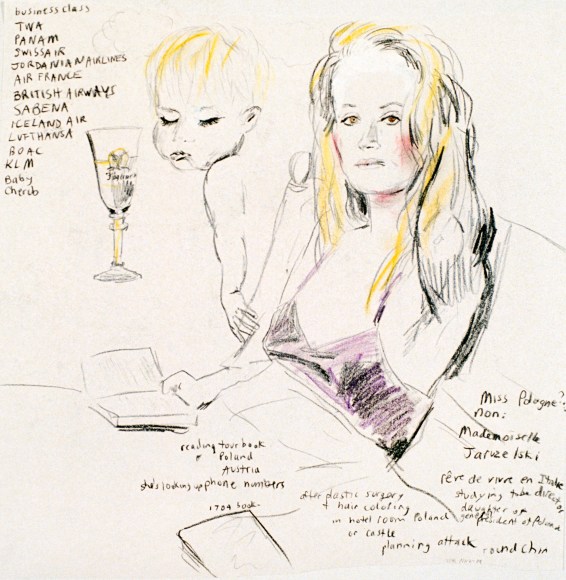 business class
TWA
PANAM
SWISSAIR
JORDANIAN AIRLINES
AIR FRANCE
BRITISH AIRWAYS
SABENA
ICELAND AIR
LUFTHANSA
BOAC
KLM
Baby
Cherub
Miss Pologne?
non:
Mademoiselle
Jaruzelski
reading tour book
Poland
Austria
she's looking up phone numbers
1704 book
after plastic surgery
+ hair coloring
in hotel room Poland
or castle
planning attack
rêve de vivre en Italie
studying to be director
daughter of
president of Poland
round chin